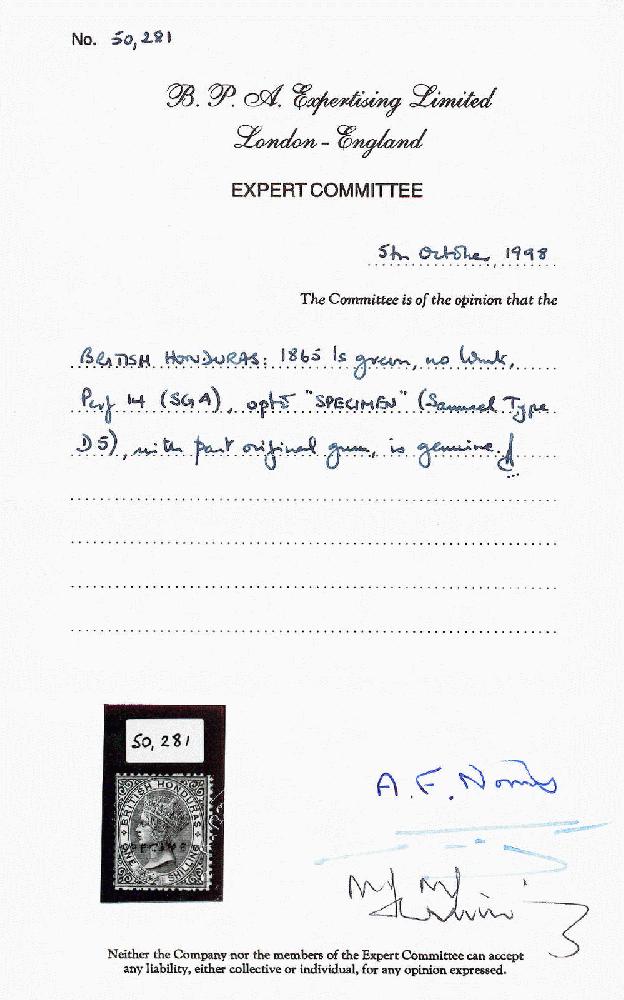 No. 50,281
B. P. A. Expertising Limited
London - England
EXPERT COMMITTEE
5th October, 1998
The Committee is of the opinion that the
BRITISH HONDURAS: 1865 1s green, no wmk,
Perf 14 (SG A), optd "SPECIMEN" (Samuel Type
D5), with part original gum, is genuine.
50,281
BRITISH HONDURAS
SPECIMEN
ONE SHILLING
A. F. Norris
Neither the Company nor the members of the Expert Committee can accept
any liability, either collective or individual, for any opinion expressed.